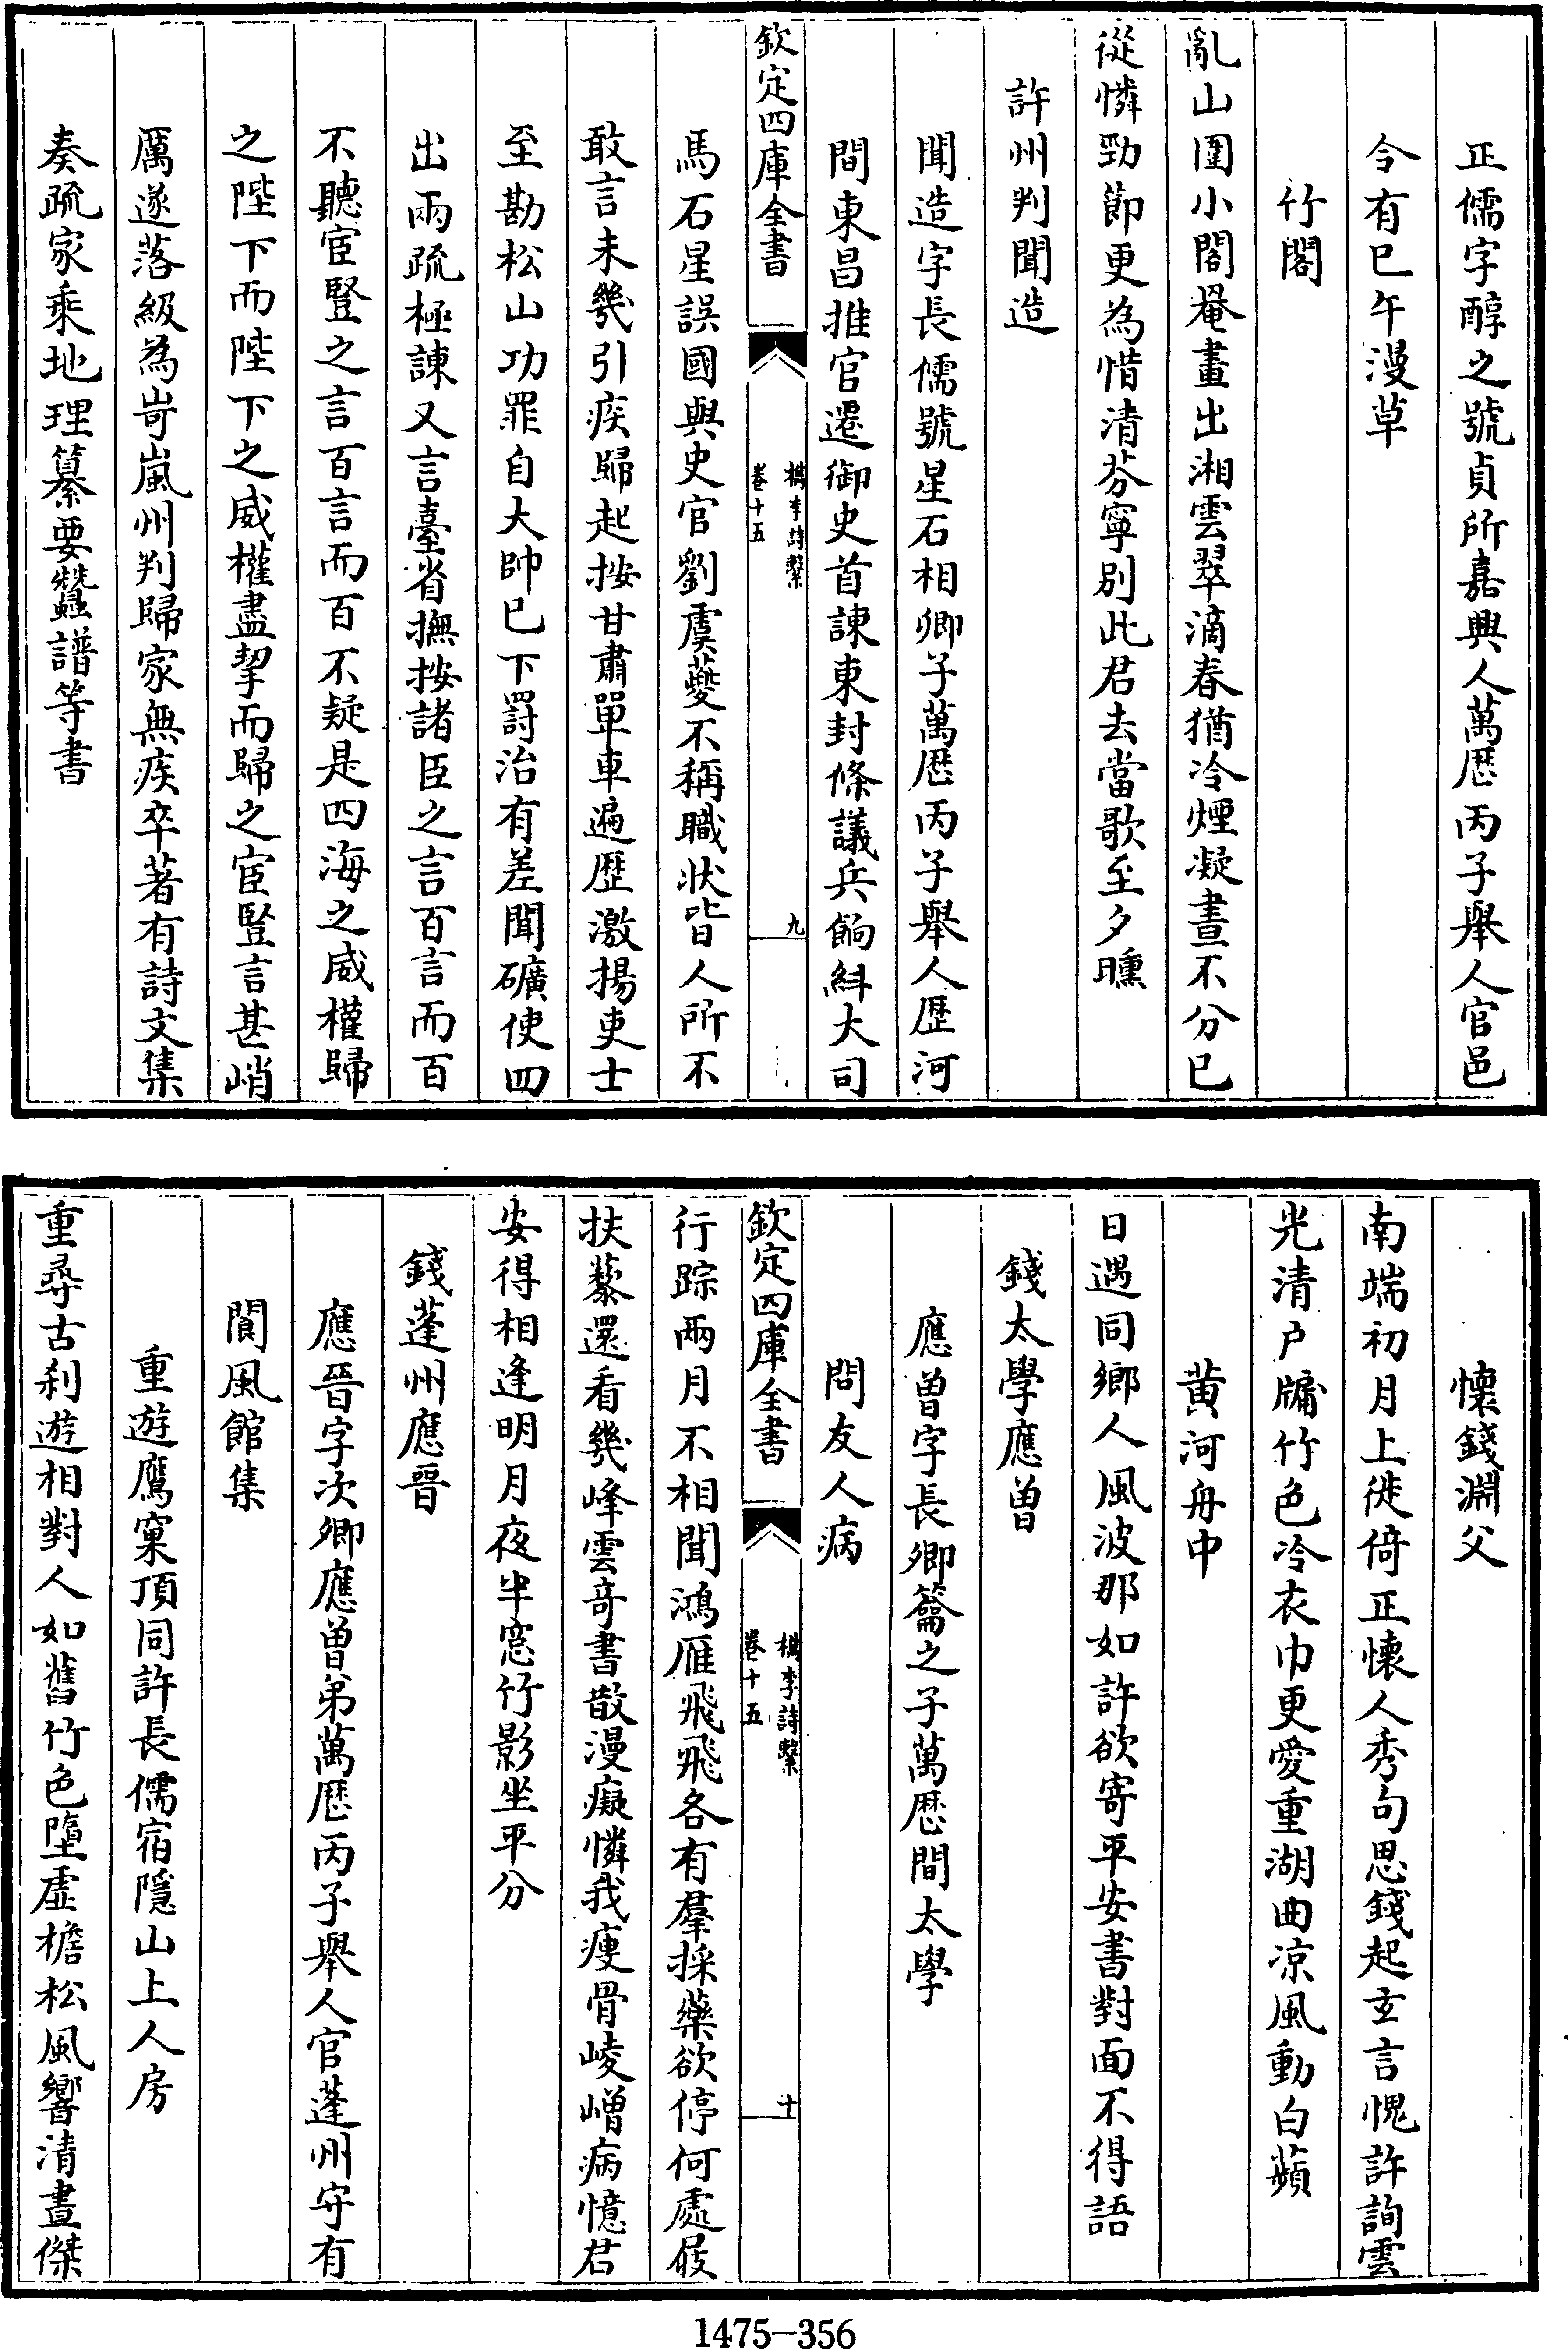 正儒字醇之號貞所嘉興人萬厯丙子舉人官邑
令有巳午漫草
竹閣
亂山圍小閣罨畫出湘雲翠滴春猶冷煙凝晝不分已
從憐勁節更為惜清芬寧别此君去當歌至夕曛
許州判聞造
聞造字長儒號星石相卿子萬厯丙子舉人歴河
間東昌推官遷御史首諌東封條議兵餉糾大司
欽定四庫全書
檇李詩繫
卷十五
九
馬石星誤國與史官劉虞夔不稱職狀皆人所不
敢言未幾引疾歸起按甘肅單車遍歴激揚吏士
至勘松山功罪自大帥已下罸治有差聞礦使四
出兩疏極諌又言臺省撫按諸臣之言百言而百
不聽宦豎之言百言而百不疑是四海之威權歸
之陛下而陛下之威權盡挈而歸之宦豎言甚峭
厲遂落級為岢嵐州判歸家無疾卒著有詩文集
奏疏家乘地理纂要蠶譜等書
懷錢淵父
南端初月上徙倚正懷人秀句思錢起玄言愧許詢雲
光清户牖竹色冷衣巾更愛重湖曲凉風動白蘋
黄河舟中
日遇同鄉人風波那如許欲寄平安書對面不得語
錢太學應曾
應曾字長卿籥之子萬厯間太學
問友人病
欽定四庫全書
檇李詩繫
卷十五
十
行踪兩月不相聞鴻雁飛飛各有羣採藥欲停何處屐
扶藜還看幾峰雲奇書散漫癡憐我瘦骨崚嶒病憶君
安得相逢明月夜半窓竹影坐平分
錢蓬州應晉
應晉字次卿應曾弟萬厯丙子舉人官蓬州守有
閬風館集
重遊鷹窠頂同許長儒宿隱山上人房
重尋古刹遊相對人如舊竹色墮虚檐松風響清晝傑
1475-356